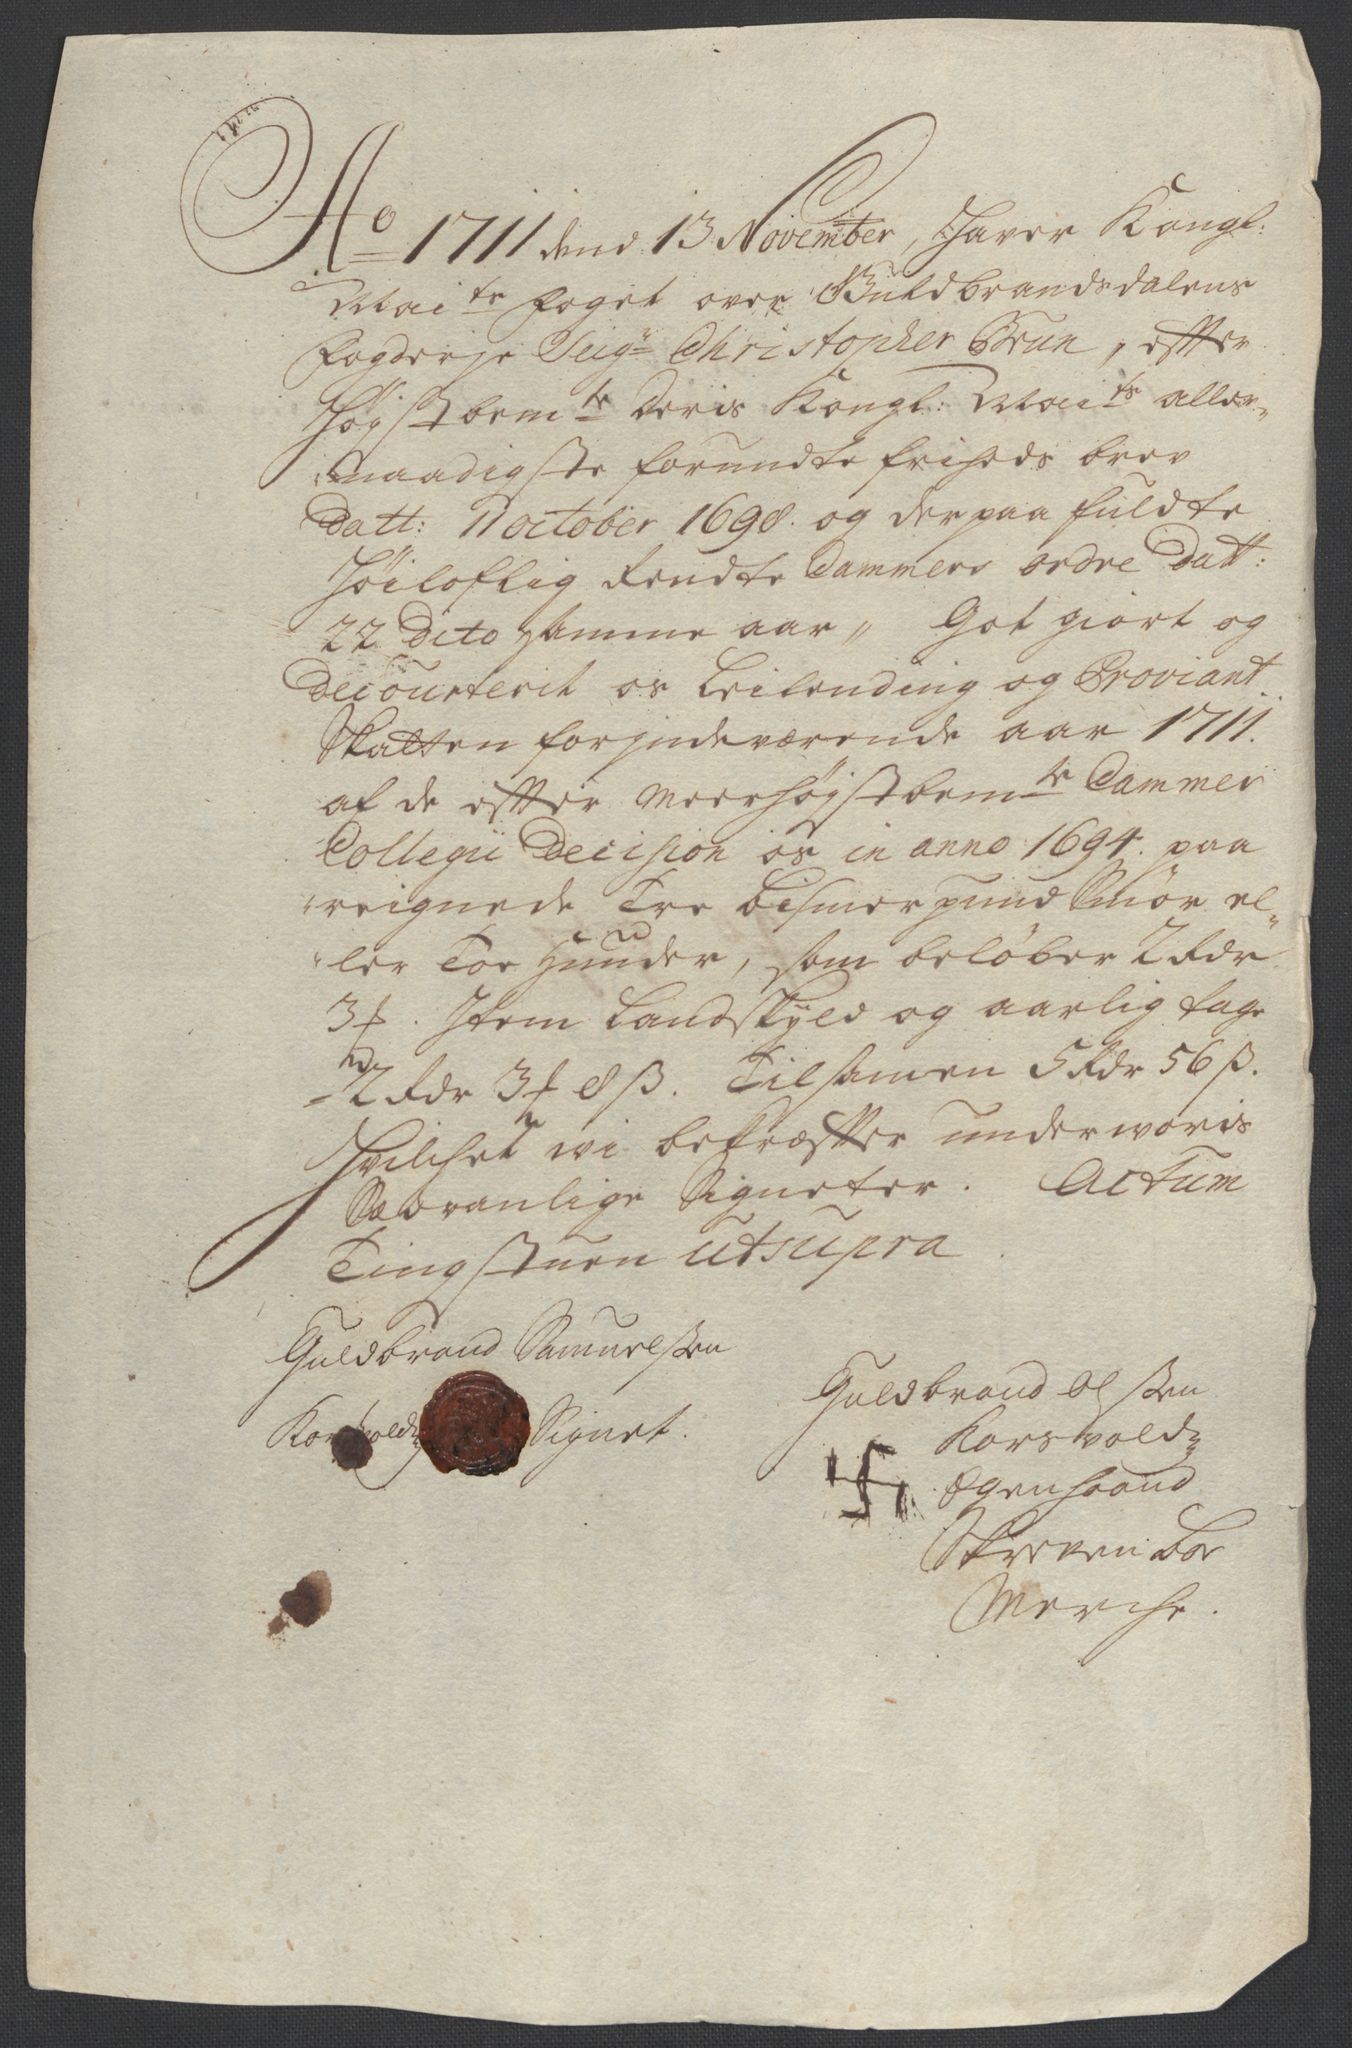 Ao 1711 dend 13 November, Hafver Kongl:
Maits foget over Guldbrandsdalens
fogderje Seigr Christopher Brun, efter
Høgstbemte Deris Kongl: Maits aller-
naadigste forundte friheds brev
Datt: 11 october 1698. og derpaa fuldte
Høiloflig Rendte Cammers ordre Datt:
22 Dito samme aar, Got giort og
Decourterit os Leilending og Proviant
Skatten for indeværende aar 1711.
af de efter meerhøgstbemte Cammer
Collegii Decision os in anno 1694. paa
reignede Tre bismerpund Smør el-
ler Toe Huuder, som beløber 2 Rdr
3 f. Item Landskyld og aarlig tage
2 Rdr 3 f 8 ß. Tilsamen 5 Rdr 56 ß.
Hvilchet wi bekræfter under woris
Sædvanlige Signeter. Actum
Tingstuen ut supra.
Guldbrand Samuelssen
Korsvold Signet.
Guldbrand Olssen
Korsvold
Egenhaand
Skreven boe
Merche.